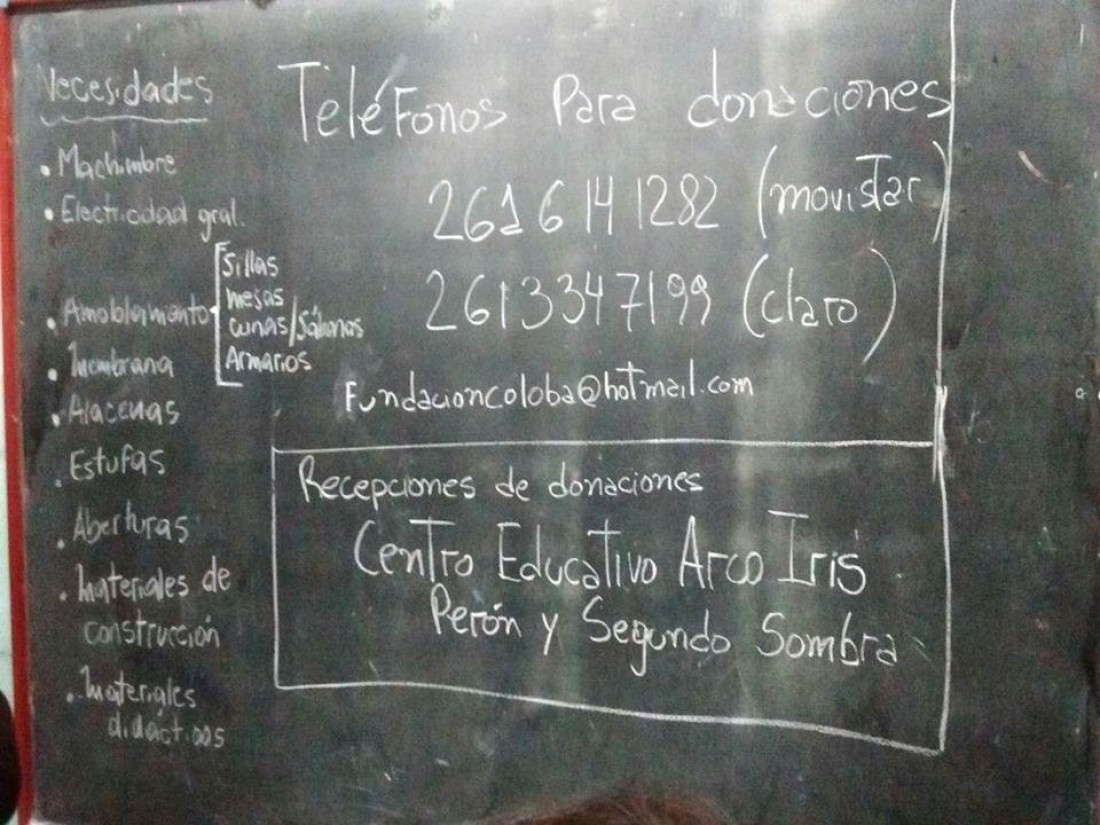 Necesidades
• Machimbre
• Electricidad gral.
• Amoblamiento
Sillas
mesas
cunas/Sábanas
Armarios
• membrana
• Alacenas
. Estufas
. Aberturas
. Materiales de
construcción
. Materiales
didácticos
Teléfonos Para donaciones
261 6 141282 (movistar)
2613347199 (claro)
Fundacioncoloba@hotmail.com
Recepciones de donaciones
Centro Educativo Arco Iris
Perón y Segundo Sombra